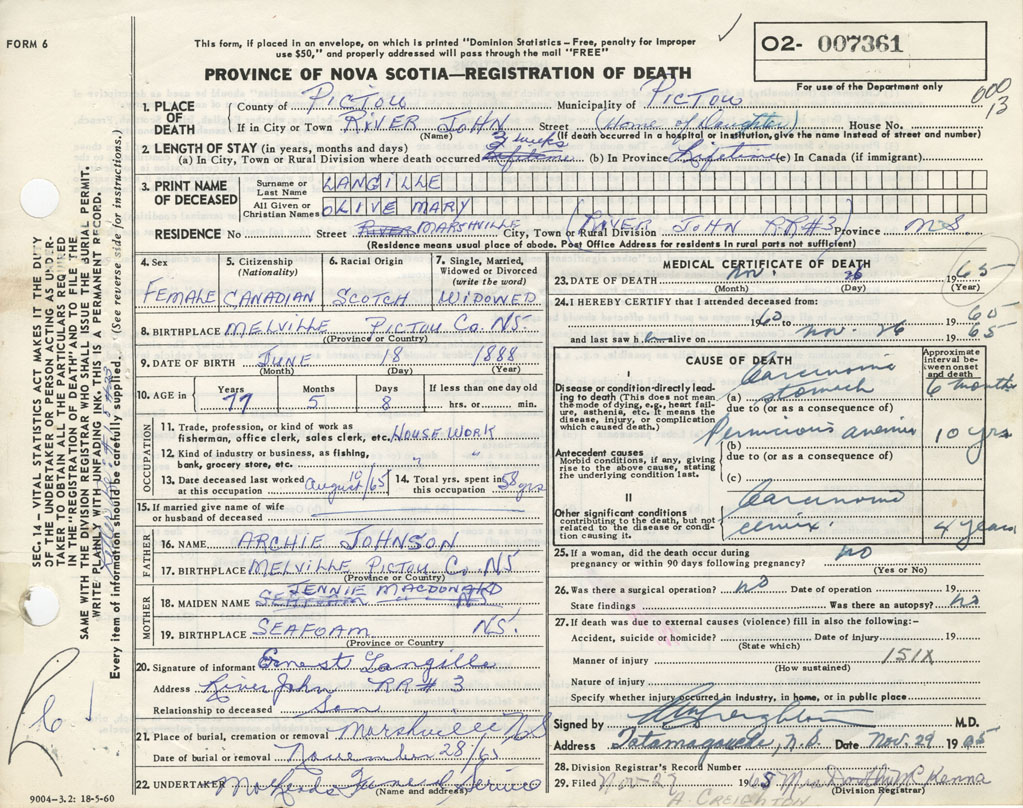 FORM 6
This form, if placed in an envelope, on which is printed "Dominion Statistics – Free, penalty for improper
use $50," and properly addressed will pass through the mail "FREE"
02- 007361
For use of the Department only
PROVINCE OF NOVA SCOTIA—REGISTRATION OF DEATH
600
13
1. PLACE OF DEATH
County of PICTOU Municipality of PICTOU
If in City or Town RIVER JOHN Street (Home of Daughter) House No.
(Name) (If death occurred in a hospital or institution, give the name instead of street and number)
2. LENGTH OF STAY (in years, months and days) 3 weeks
(a) In City, Town or Rural Division where death occurred Lifetime (b) In Province Lifetime (c) In Canada (if immigrant)
3. PRINT NAME OF DECEASED
Surname or Last Name LANGILLE
All Given or Christian Names OLIVE MARY
RESIDENCE No Street RIVER MARSHVILLE City, Town or Rural Division (RIVER JOHN RR#3) Province NS
(Residence means usual place of abode. Post Office Address for residents in rural parts not sufficient)
4. Sex FEMALE
5. Citizenship (Nationality) CANADIAN
6. Racial Origin SCOTCH
7. Single, Married, Widowed or Divorced (write the word) WIDOWED
8. BIRTHPLACE MELVILLE PICTOU Co. NS.
(Province or Country)
9. DATE OF BIRTH JUNE 18 1888
(Month) (Day) (Year)
10. AGE in Years 77 Months 5 Days 8 If less than one day old hrs. or min.
OCCUPATION
11. Trade, profession, or kind of work as
fisherman, office clerk, sales clerk, etc. HOUSE WORK
12. Kind of industry or business, as fishing,
bank, grocery store, etc. " "
13. Date deceased last worked at this occupation August 10/65
14. Total yrs. spent in this occupation 58 yrs
15. If married give name of wife
or husband of deceased
FATHER
16. NAME ARCHIE JOHNSON
17. BIRTHPLACE MELVILLE PICTOU Co. NS
(Province or Country)
MOTHER
JENNIE MACDONALD
18. MAIDEN NAME SEAFOAM NS
19. BIRTHPLACE SEAFOAM NS.
(Province or Country)
20. Signature of informant Ernest Langille
Address River John RR#3
Relationship to deceased Son
21. Place of burial, cremation or removal Marshville NS
Date of burial or removal November 28/65
22. UNDERTAKER Funeral Service
(Name and address)
9004-3.2: 18-5-60
MEDICAL CERTIFICATE OF DEATH
23. DATE OF DEATH Nov. 26 1965
(Month) (Day) (Year)
24. I HEREBY CERTIFY that I attended deceased from:
1960 to 19 60
and last saw h alive on Nov. 26 19 65
CAUSE OF DEATH
Approximate interval between onset and death
I
Disease or condition directly leading to death (This does not mean the mode of dying, e.g., heart failure, asthenia, etc. It means the disease, injury, or complication which caused death.)
Carcinoma
(a) stomach 6 months
due to (or as a consequence of)
Pernicious anemia 10 yrs
Antecedent causes
Morbid conditions, if any, giving rise to the above cause, stating the underlying condition last.
(b)
due to (or as a consequence of)
(c)
II
Other significant conditions
contributing to the death, but not related to the disease or condition causing it.
Carcinoma
cervix. 4 years
25. If a woman, did the death occur during
pregnancy or within 90 days following pregnancy? no
(Yes or No)
26. Was there a surgical operation? no Date of operation 19
State findings Was there an autopsy? no
27. If death was due to external causes (violence) fill in also the following:–
Accident, suicide or homicide? Date of injury 19
(State which)
Manner of injury 151X
(How sustained)
Nature of injury
Specify whether injury occurred in industry, in home, or in public place
Signed by Creighton M.D.
Address Tatamagouche, N.S. Date Nov. 29 1965
28. Division Registrar's Record Number
29. Filed Nov 27 1965 Mrs Dorothy McKenna
(Division Registrar)
A. CREIGHTON
SEC. 14 – VITAL STATISTICS ACT MAKES IT THE DUTY
OF THE UNDERTAKER OR PERSON ACTING AS UNDER-
TAKER TO OBTAIN ALL THE PARTICULARS REQUIRED
IN THE "REGISTRATION OF DEATH" AND TO FILE THE
SAME WITH THE DIVISION REGISTRAR WHO SHALL ISSUE THE BURIAL PERMIT.
WRITE PLAINLY WITH UNFADING INK. THIS IS A PERMANENT RECORD.
Every item of information should be carefully supplied. (See reverse side for instructions.)